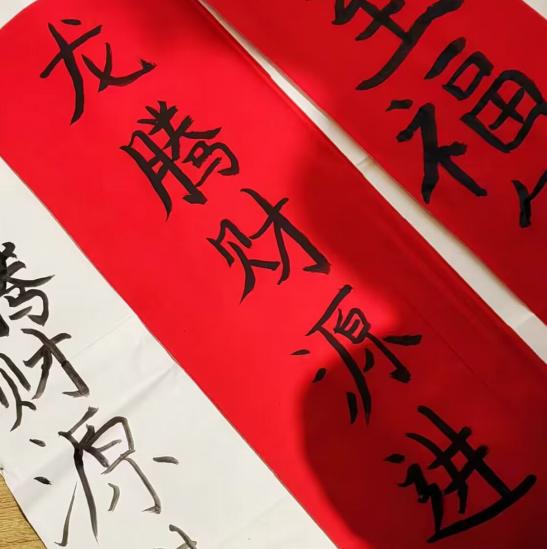 龙腾财源进
至福
腾财源